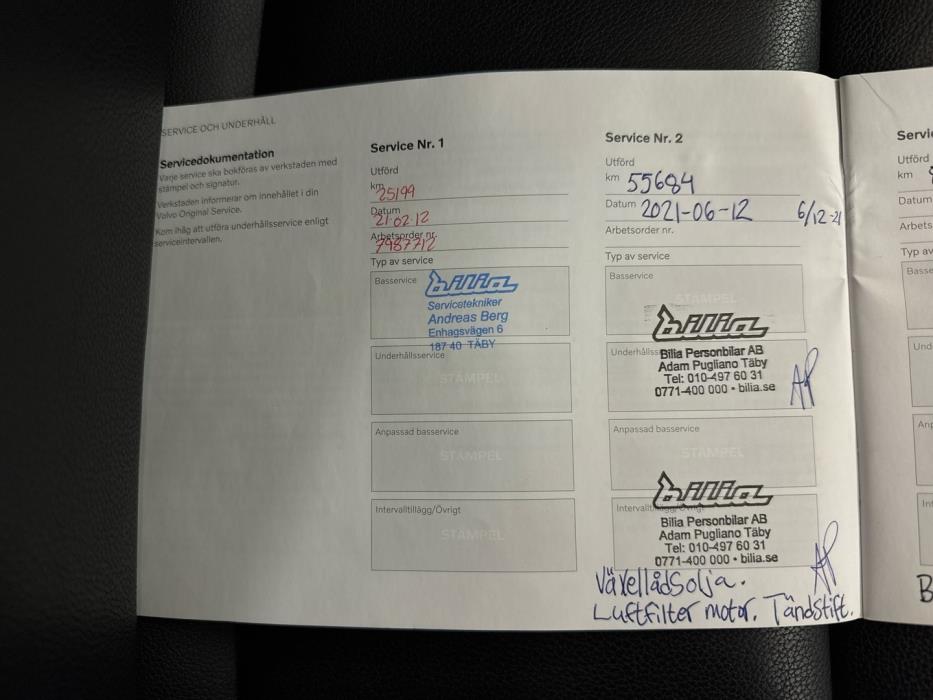 SERVICE OCH UNDERHÅLL
Servicedokumentation
Varje service ska bokföras av verkstaden med
stämpel och signatur.
Verkstaden informerar om innehållet i din
Volvo Original Service.
Kom ihåg att utföra underhållsservice enligt
serviceintervallen.
Service Nr. 1
Utförd
km 25199
Datum 21-02-12
Arbetsorder nr. 7987712
Typ av service
Basservice
bilia
Servicetekniker
Andreas Berg
Enhagsvägen 6
187 40 TÄBY
Underhållsservice
STÄMPEL
Anpassad basservice
STÄMPEL
Intervalltillägg/Övrigt
STÄMPEL
Service Nr. 2
Utförd
km 55684
Datum 2021-06-12 6/12-21
Arbetsorder nr.
Typ av service
Basservice
STÄMPEL
bilia
Bilia Personbilar AB
Adam Pugliano Täby
Tel: 010-497 60 31
0771-400 000 • bilia.se
AP
Anpassad basservice
STÄMPEL
bilia
Bilia Personbilar AB
Adam Pugliano Täby
Tel: 010-497 60 31
0771-400 000 • bilia.se
AP
Växellådsolja.
Luftfilter motor. Tändstift.
Utförd
km
Datum